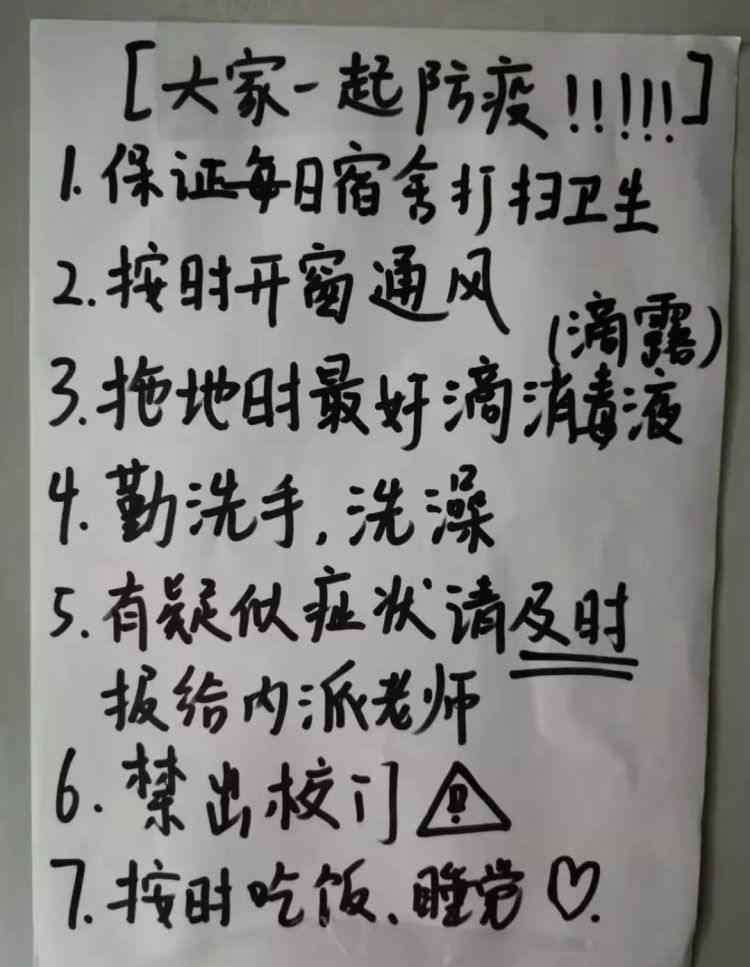 [大家一起防疫!!!!!]
1. 保证每日宿舍打扫卫生
2. 按时开窗通风
(滴露)
3. 拖地时最好滴消毒液
4. 勤洗手,洗澡
5. 有疑似症状请及时
报给内派老师
6. 禁出校门 !
7. 按时吃饭、睡觉♡.